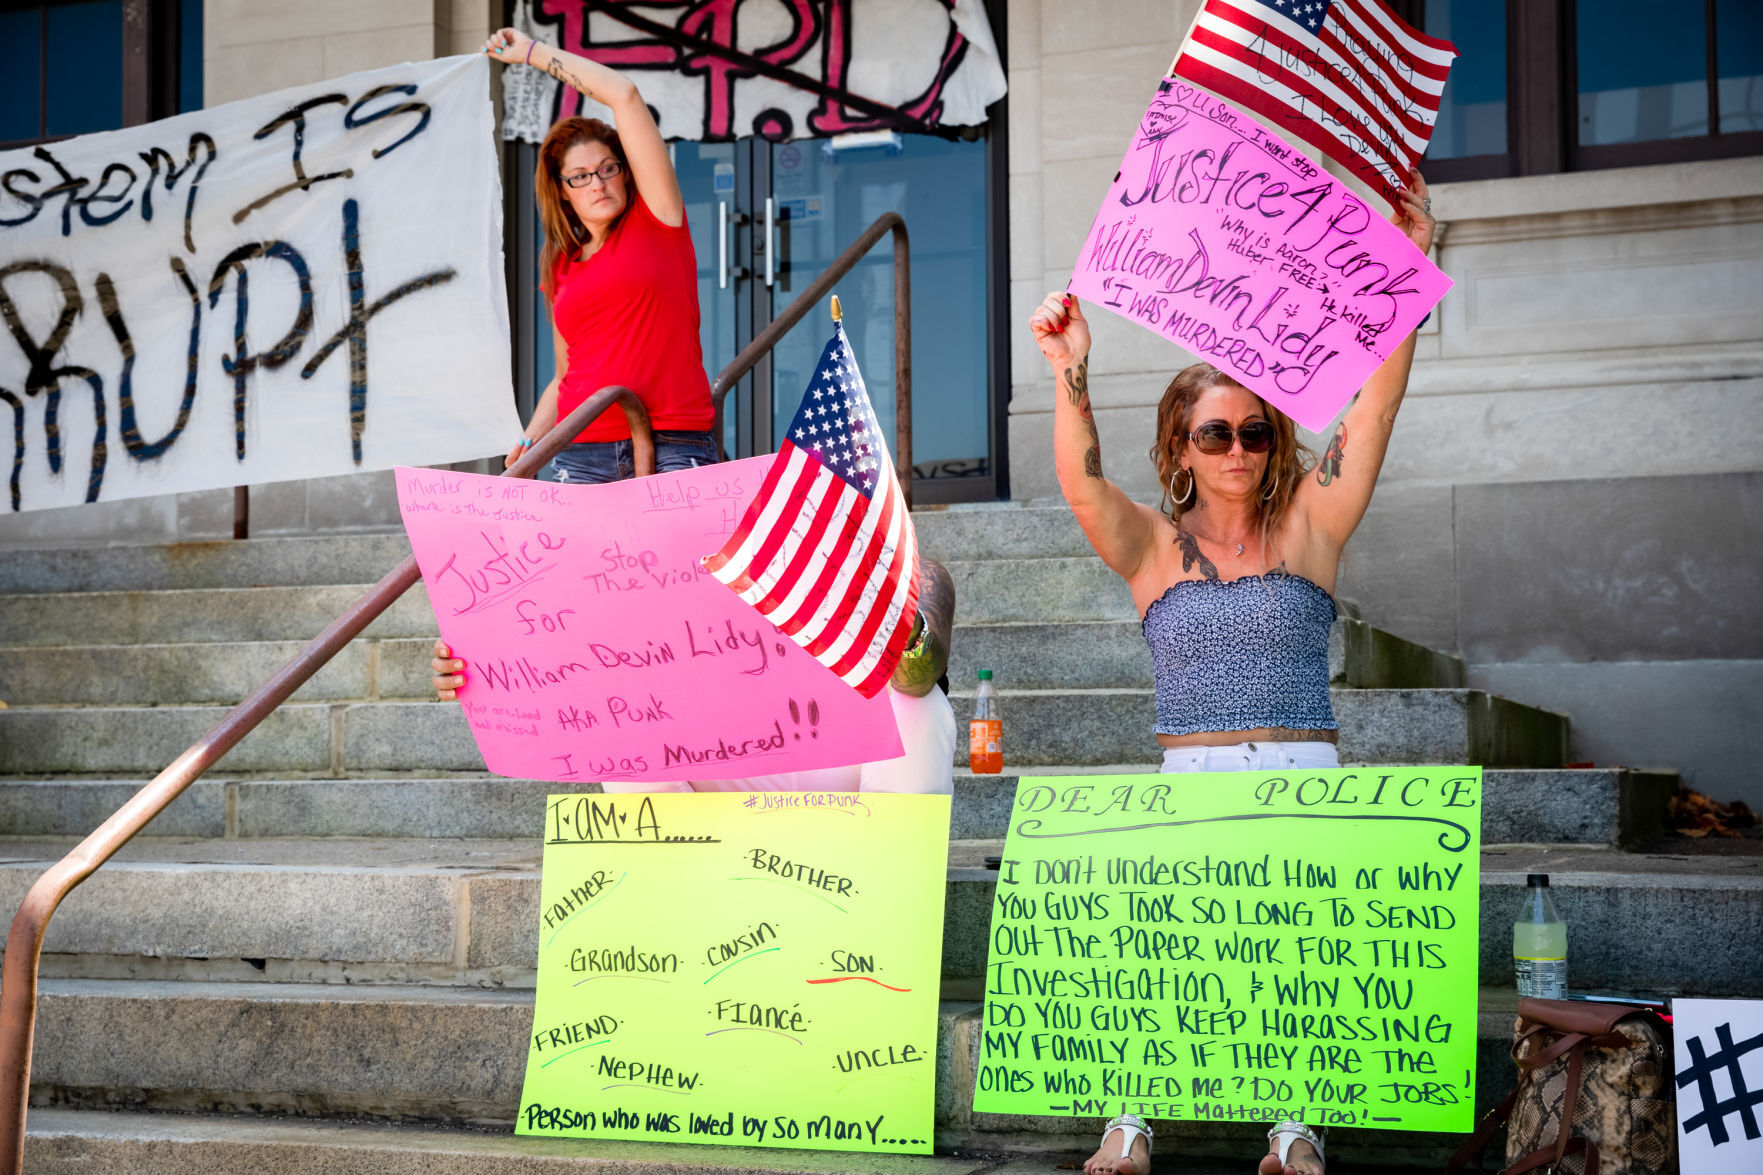 stem Is
RUPt
E.P.D
Praying
4 Justice 4 Punk
I Love you
Devin
I ♡ U Son... I wont stop
Promise
Justice 4 Punk
"Why is Aaron?"
Huber FREE?
He killed
me...
William Devin Lidy
"I WAS MURDERED"
Murder is NOT OK..
where is The Justice
Help us
Justice
Stop
The Viole
for
William Devin Lidy!
You are Loved
and missed
AKA PUNK
I was Murdered!!
I·AM·A......
#JusticeForPunk
·BROTHER·
·Father·
·Grandson·
·cousin·
·SON·
·FIancé·
·FRIEND·
·NepHew·
·UNCLE·
·Person who was loved by so many.....
DEAR POLICE
I Don't understand How or why
YOU GUYS TOOK SO LONG TO SEND
OUT THe PAPER WORK FOR THIS
INVESTIGation, & WHY YOU
DO YOU GUYS KEEP HARASSING
MY FAMILY AS IF THEY ARE THE
ONES WHO KILLED Me? DO YOUR JOBS!
—MY LIFE Mattered Too!—
#